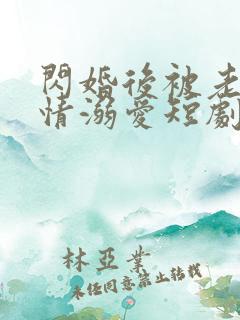 閃婚後被老
情溺愛短劇
林亞業
未经同意禁止转载